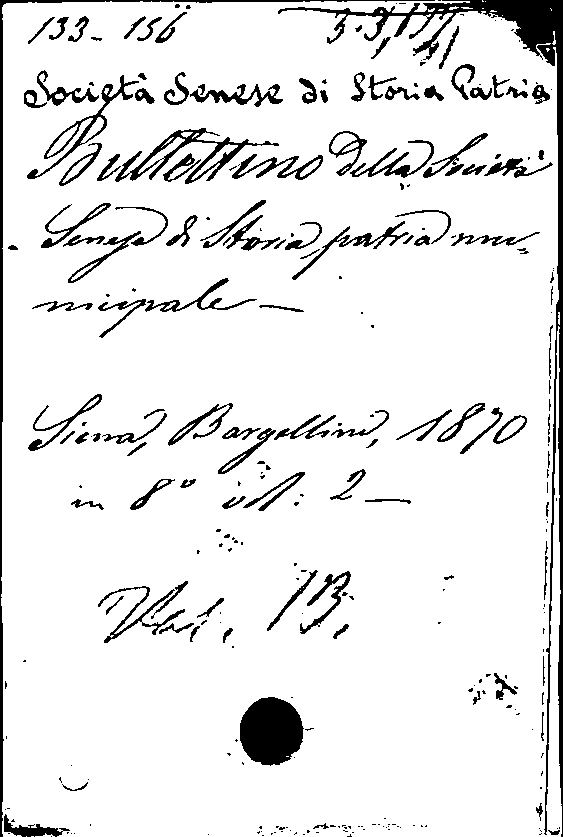 133-156
Società Senese di Storia Patria
Bullettino della Società
Senese di Storia patria mu-
nicipale —
Siena, Bargellini, 1870
in 8° vol: 2 —